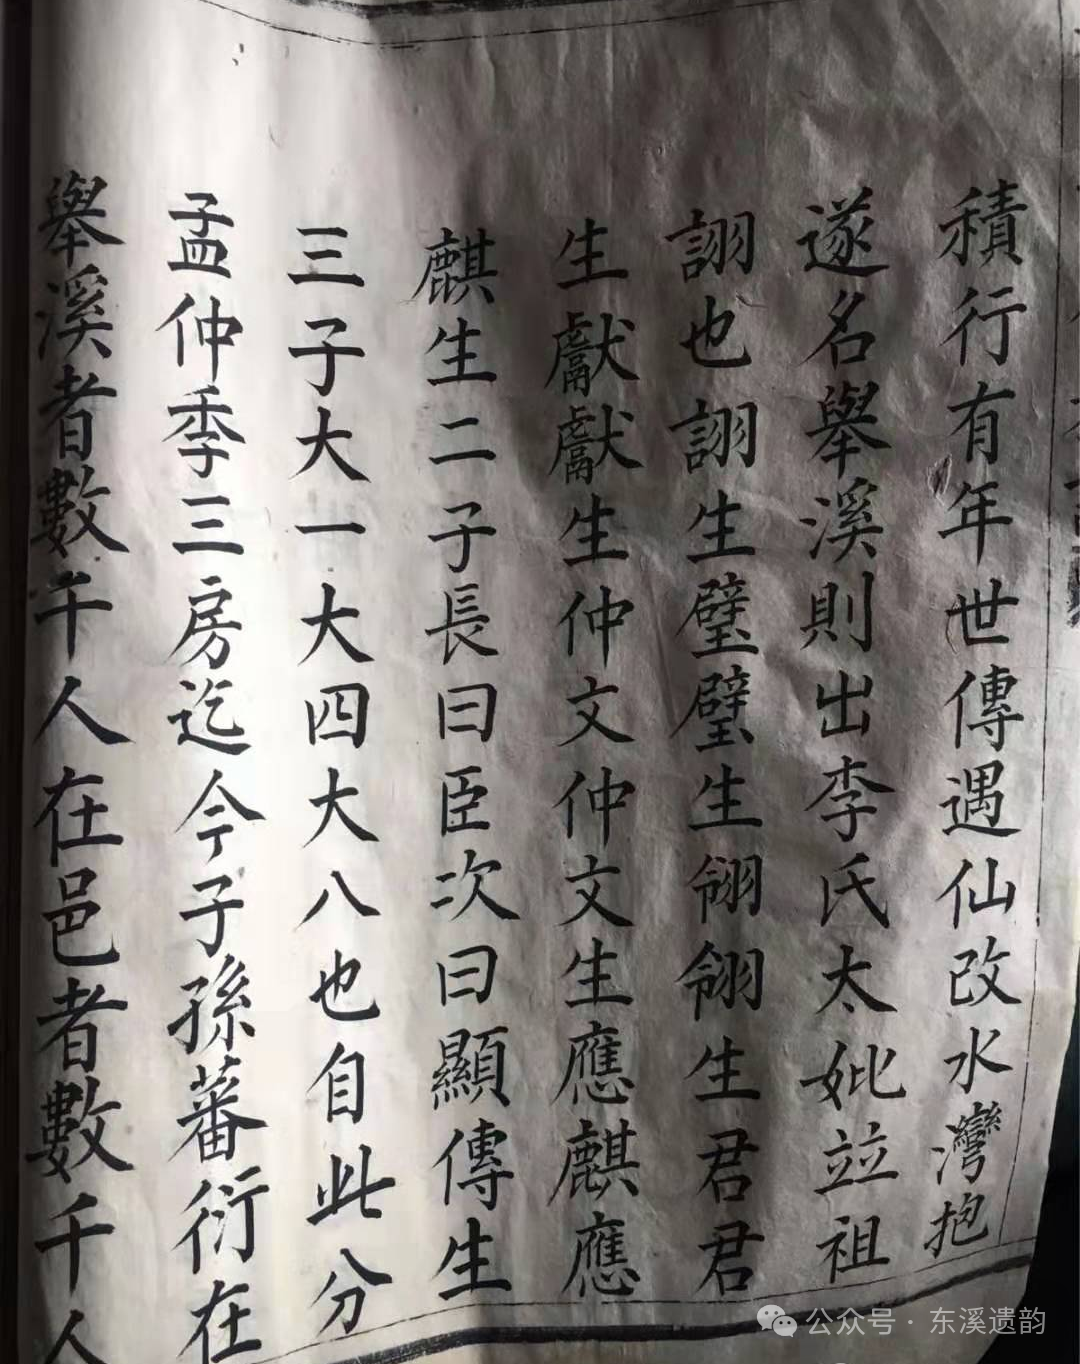 積行有年世傳遇仙改水灣抱
遂名舉溪則出李氏太妣竝祖
詡也詡生璧璧生翎翎生君君
生獻獻生仲文仲文生應麒應
麒生二子長曰臣次曰顯傳生
三子大一大四大八也自此分
孟仲季三房迄今子孫蕃衍在
舉溪者數千人在邑者數千人
公众号·东溪遗韵